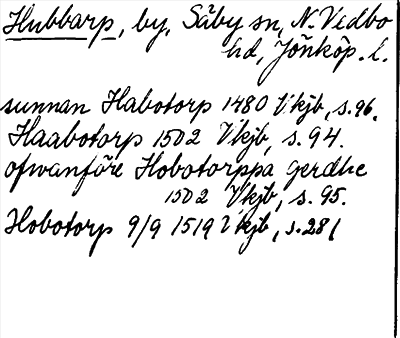 Hubbarp, by, Säby sn, N. Vedbo
hd, Jönköp. l.
sunnan Habotorp 1480 Vkjb, s. 96.
Haabotorp 1502 Vkjb, s. 94.
ofwanföre Hobotorppa gerdhe
1502 Vkjb, s. 95.
Hobotorp 9/9 1519 Vkjb, s. 281